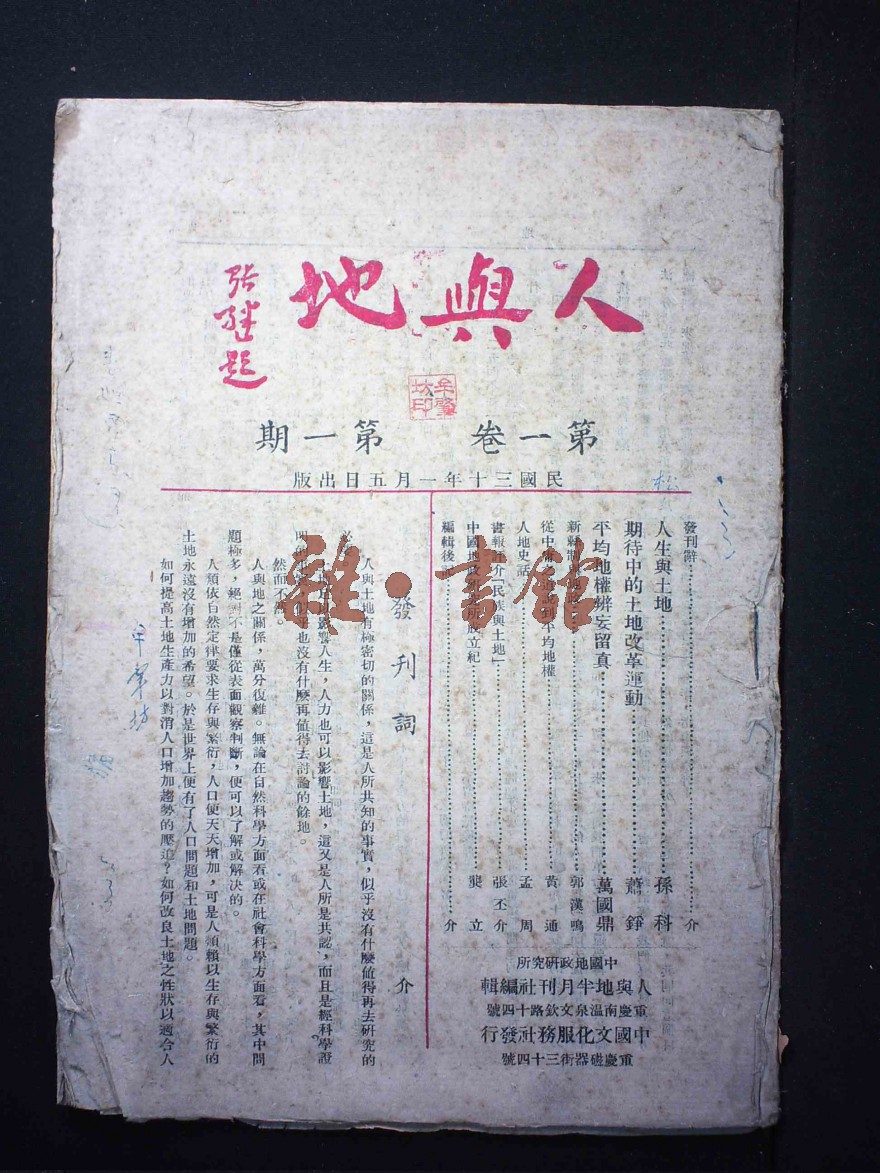 人與地
張繼題
牟肇
坊印
第一卷　第一期
民國三十年一月五日出版
發刊辭……介
人生與土地……孫科
期待中的土地改革運動……蕭錚
平均地權辨妄留真……萬國鼎
郭漢鳴
平均地權……黃通
人地史話……孟周
書報評介「民族與土地」……張丕介
中國地政研究所成立紀……龔立
編輯後記……介
中國地政研究所
人與地半月刊社編輯
重慶南溫泉文欽路十四號
中國文化服務社發行
重慶磁器街三十四號
發刊詞　介
人與土地有極密切的關係，這是人所共知的事實，似乎沒有什麼值得再去研究的
影響人生，人力也可以影響土地，這又是人所是共認，而且是經科學證
也沒有什麼再值得去討論的餘地。
然而不然。
人與地之關係，萬分復雜。無論在自然科學方面看或在社會科學方面看，其中問
題極多，絕對不是僅從表面觀察判斷，便可以了解或解決的。
人類依自然定律要求生存與繁衍，人口便天天增加，可是人類賴以生存與繁衍的
土地永遠沒有增加的希望。於是世界上便有了人口問題和土地問題。
如何提高土地生產力以對消人口增加趨勢的壓迫？如何改良土地之性狀以適合人
雜·書館